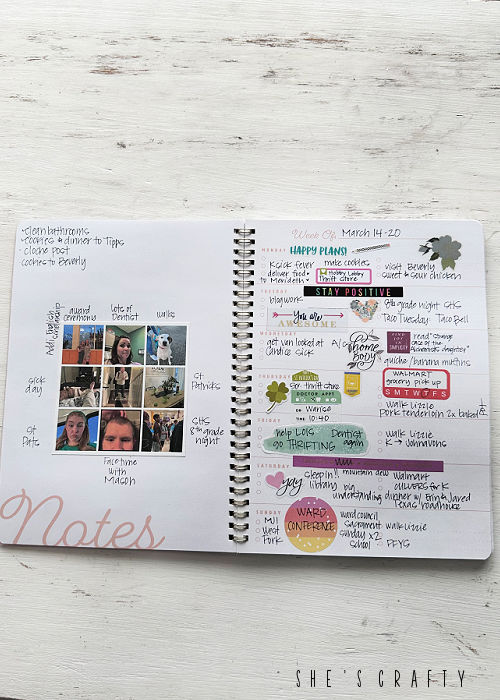 - clean bathrooms
- cookies & dinner to Tipps
- cloche post
cookies to Beverly
award ceremony
lots of Dentist
walks
sick day
St Pats
St Patricks
SHS
8th grade
night
Facetime
with
Mason
Notes
Week Of: March 14-20
MONDAY
HAPPY PLANS!
K sick fever
make cookies
deliver food
to Meredith
Hobby Lobby
Thrift Store
visit Beverly
sweet & sour chicken
STAY POSITIVE
TUESDAY
blog work
You are
AWESOME
8th grade night SHS
Taco Tuesday Taco Bell
WEDNESDAY
get van looked at A/C
Candice sick
home
body
read "Change
quiche / banana muffins
THURSDAY
thrift store
DOCTOR APPT
10:40
WALMART
grocery pick up
S M T W T F S
walk Lizzie
pork tenderloin 2x baked
FRIDAY
help Lois Dentist
go THRIFTING again
walk Lizzie
K → Johnvons
SATURDAY
yay
sleep in!! mountain dew
library big
understanding
Walmart
culvers for K
dinner w/ Erin & Jared
Texas roadhouse
SUNDAY
MJ1
West
Fork
WARD
CONFERENCE
ward council
Sacrament
Sunday x2
School
walk Lizzie
PFYS
SHE'S CRAFTY